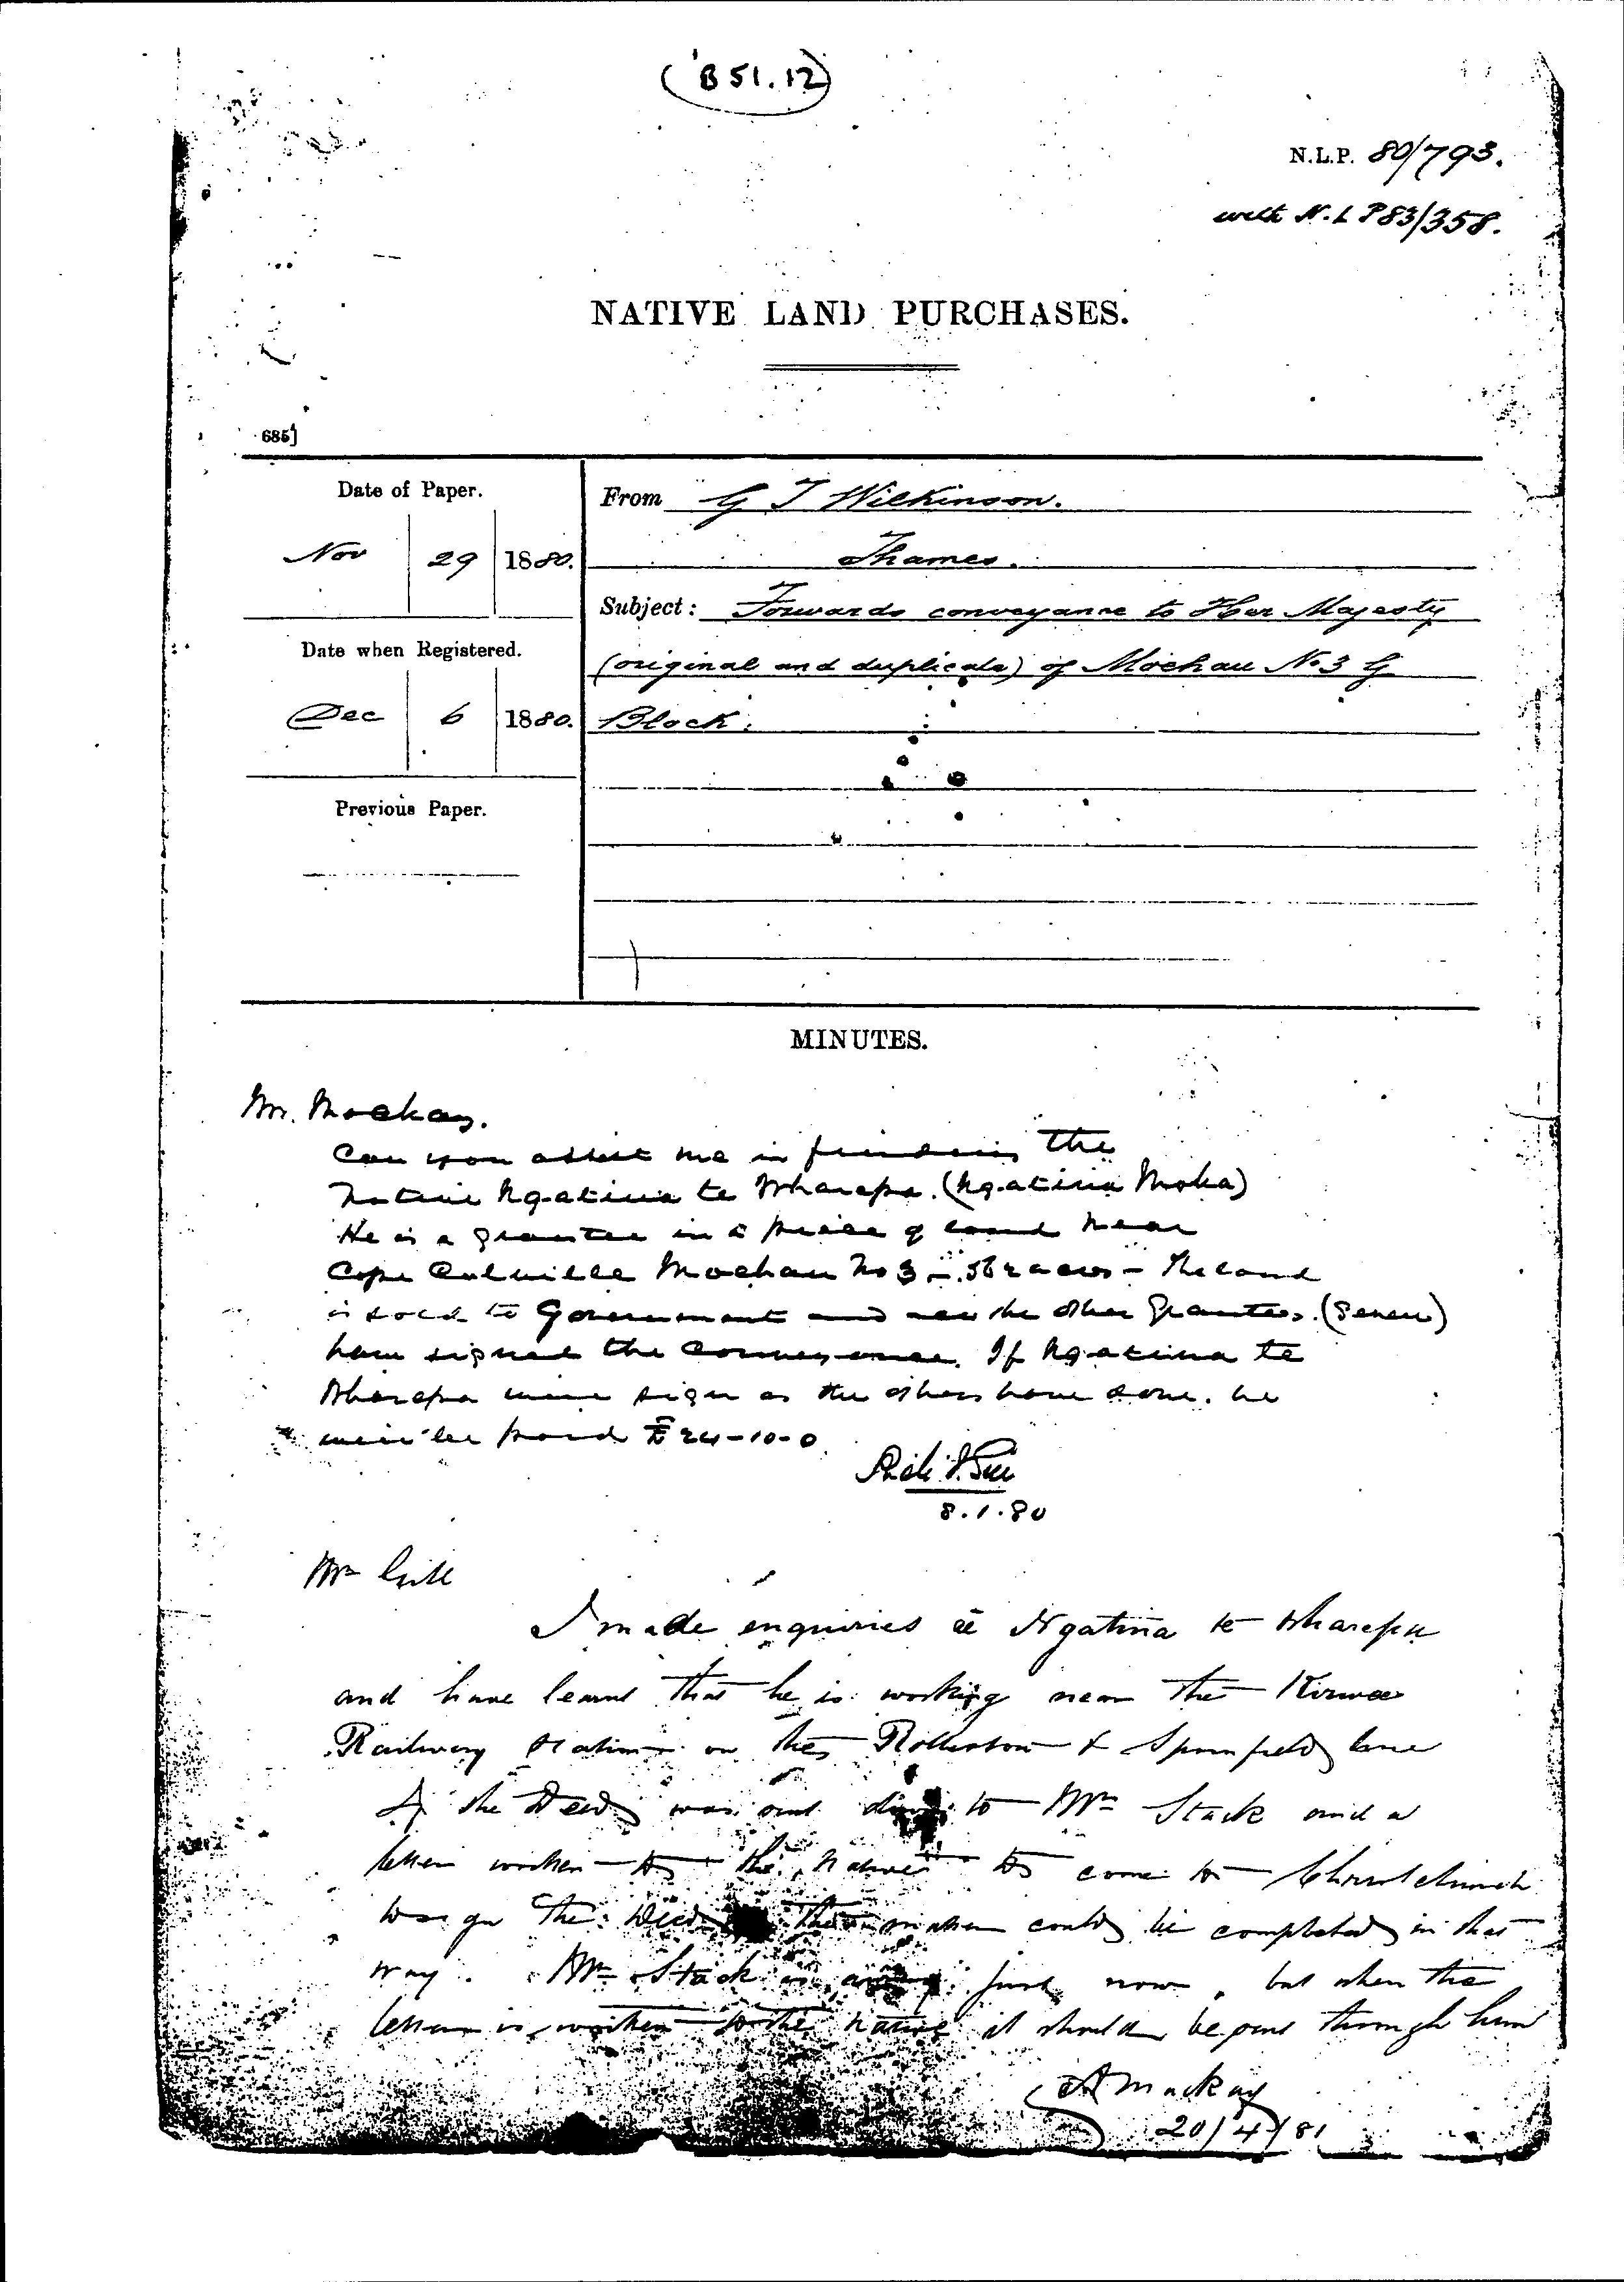 (B 51.12)
N.L.P. 80/793.
with N.L P 83/358.
NATIVE LAND PURCHASES.
685]
Date of Paper.
Nov 29 1880.
Date when Registered.
Dec 6 1880.
Previous Paper.
From G T Wilkinson.
Thames.
Subject: Forwards conveyance to Her Majesty
(original and duplicate) of Moehau No 3 G
Block.
MINUTES.
Mr. Mackay.
Can you assist me in finding the
Native Ngatina te Wharepa. (Ngatina Moka)
He is a grantee in a piece of land near
Cape Colville Moehau No 3 - acres - The land
is sold to Government and all the other Grantees. (Seven)
have signed the Conveyance. If Ngatina te
Wharepa will sign as the others have done. he
will be paid £24-10-0
8.1.80
Mr Gill
I made enquiries re Ngatina te Wharepa
and have learnt that he is working near the Kirwee
Railway Station on the Rolleston & Springfield line
If the Deed was sent down to Mr Stack and a
letter written to the native to come to Christchurch
to sign the Deed the matter could be completed in that
way. Mr Stack is away just now, but when the
letter is written to the native it should be sent through him
A Mackay
20/4/81